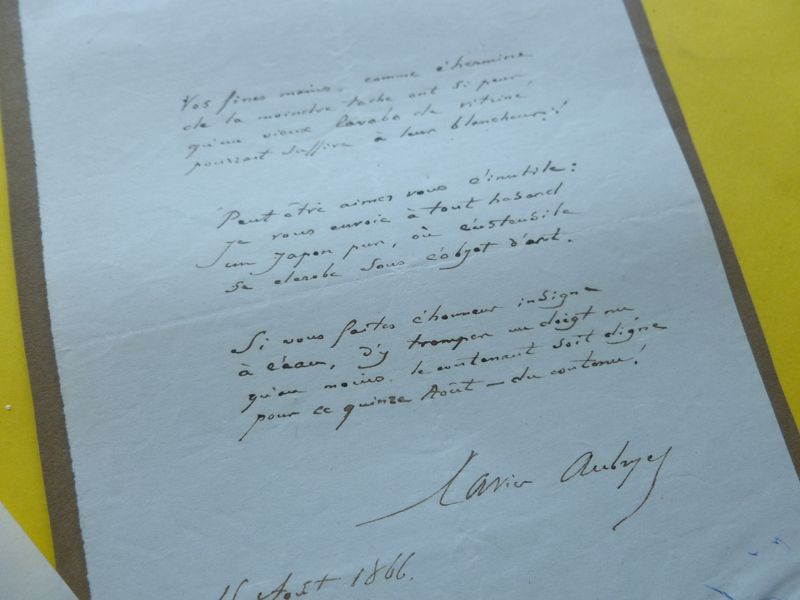 Vos fines mains, comme l'hermine
de la moindre tache ont si peur
qu'un vieux lavabo de vitrine
pourrait suffire à leur blancheur !
Peut être aimez vous l'inutile :
Je vous envoie à tout hasard
un Japon pur, où l'ustensile
se dérobe sous l'objet d'art.
Si vous faites l'honneur insigne
à l'eau, d'y tremper un doigt nu
qu'au moins le contenant soit digne
pour ce quinze Août - du contenu !
Xavier Aubryet
15 Août 1866.